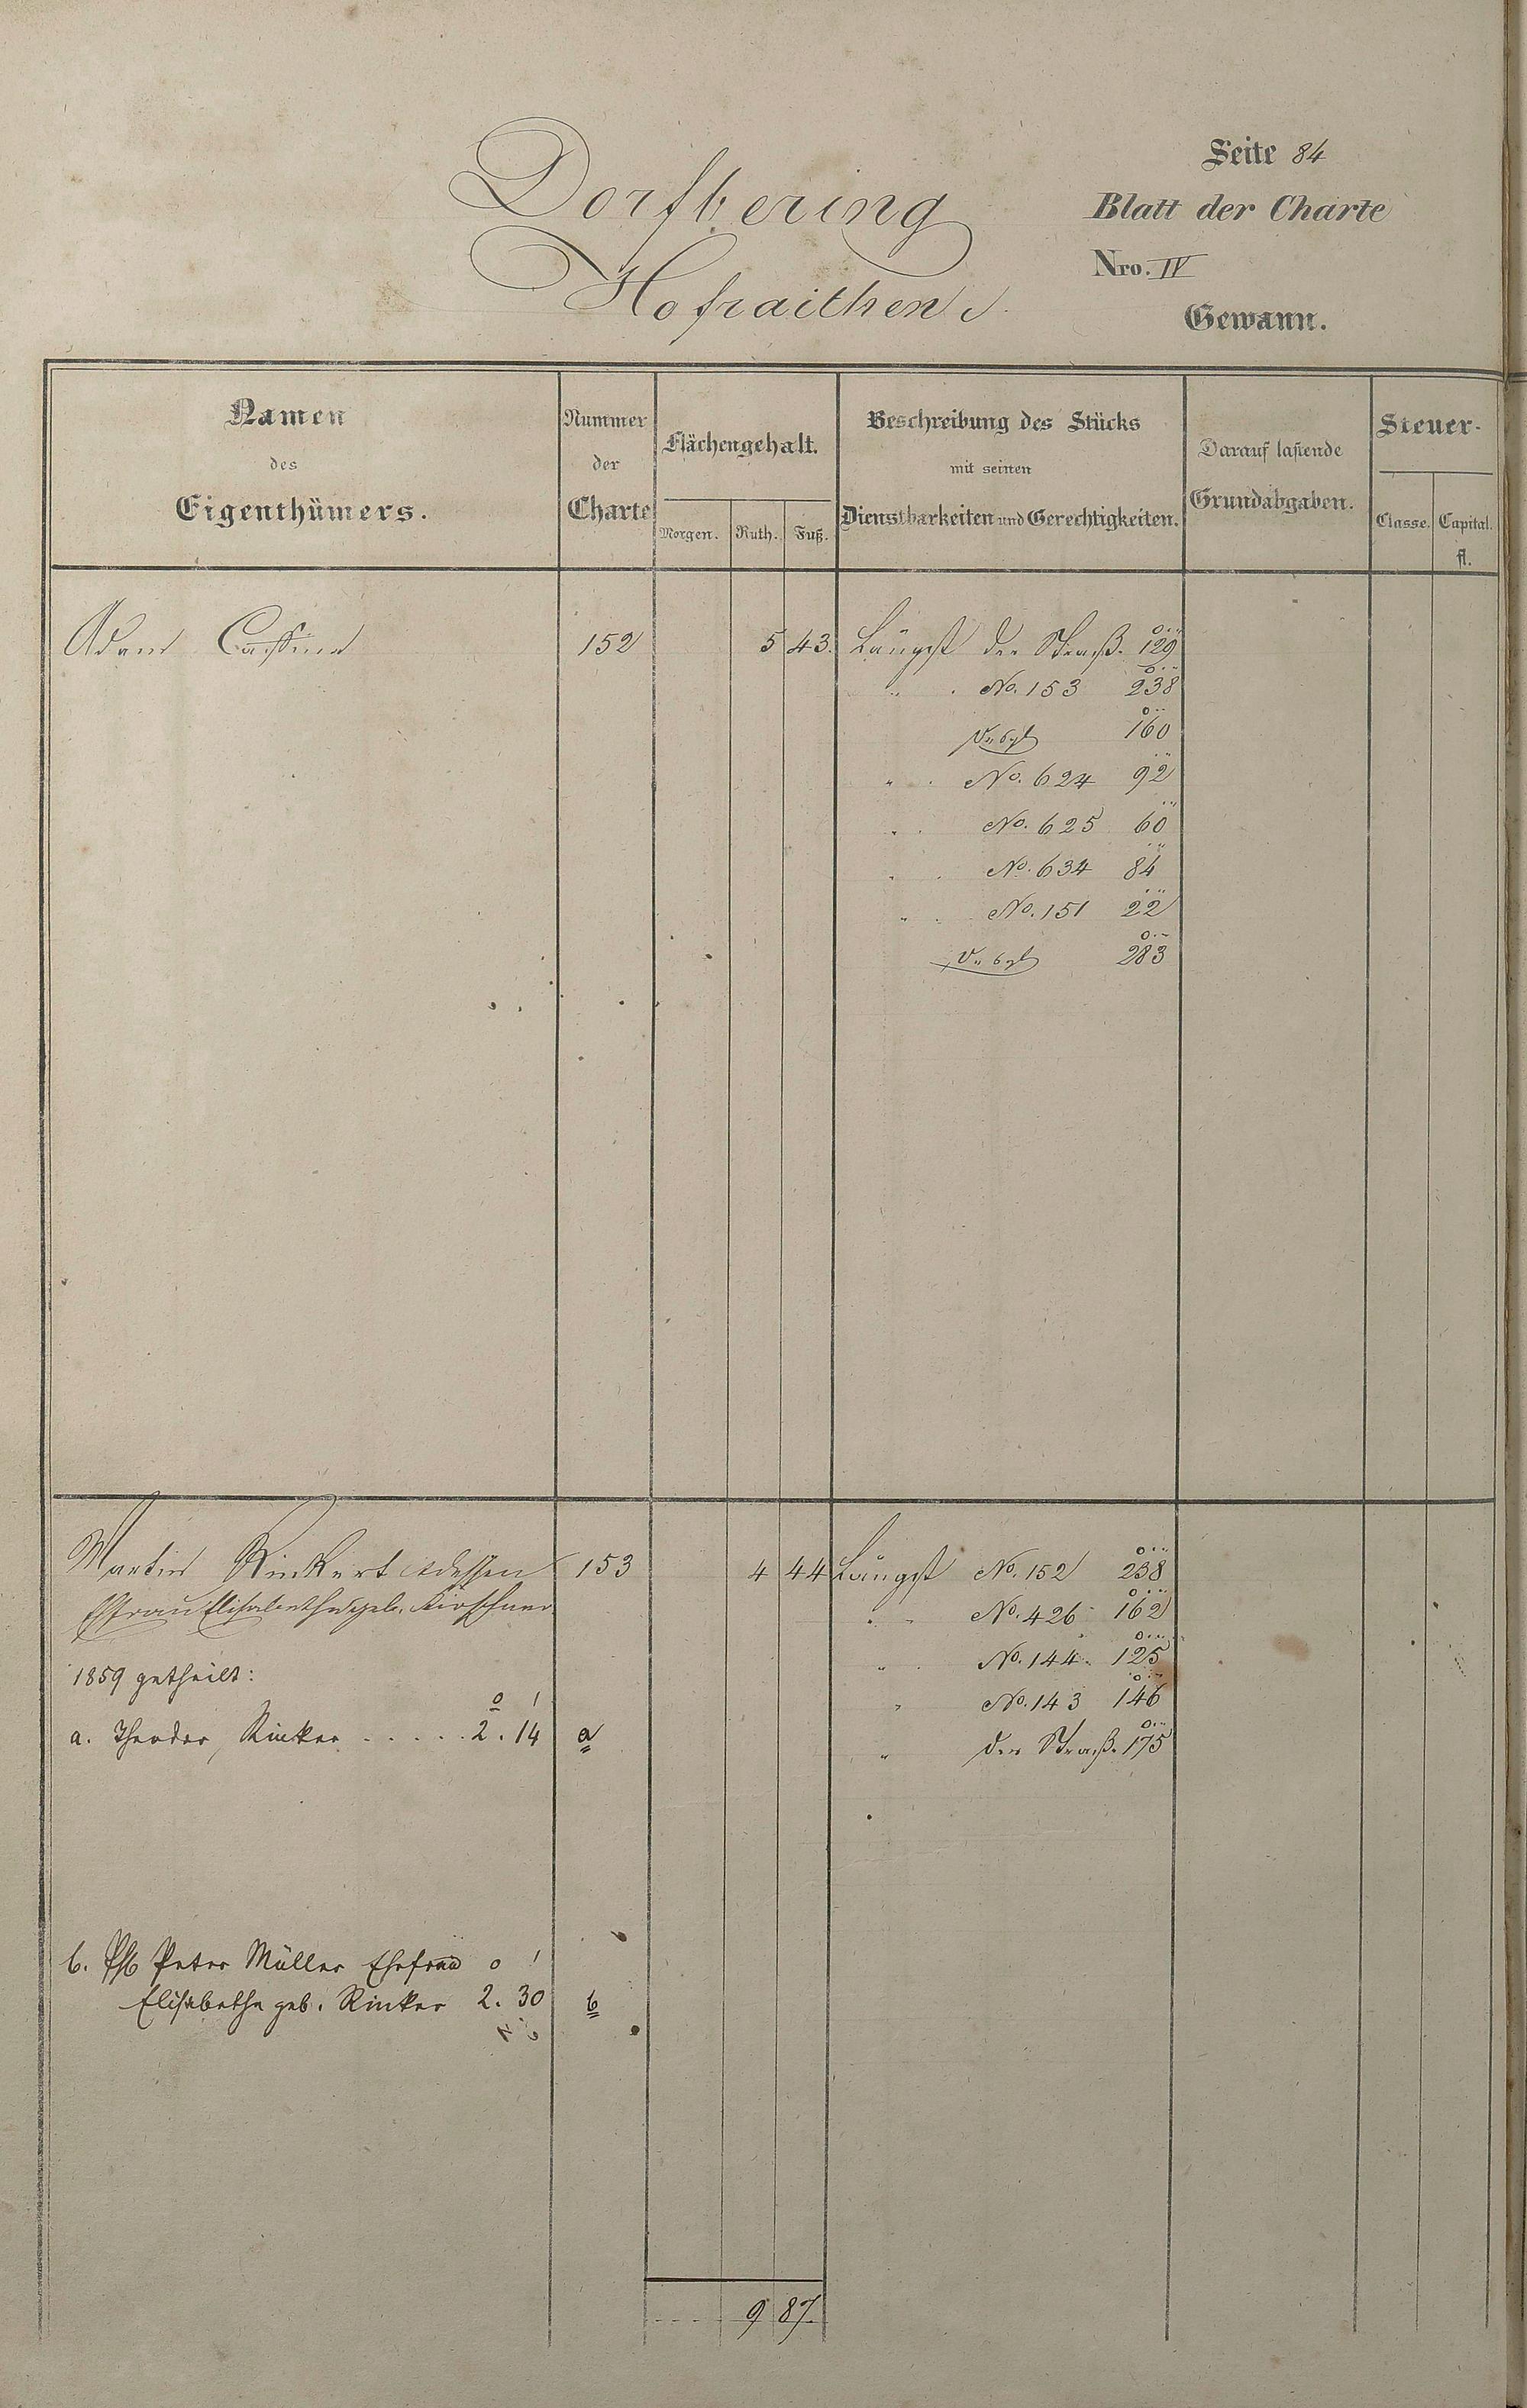 Dorfbering
Hofraithen
Seite 84
Blatt der Charte
Nro. IV
Gewann.
Namen
des
Eigenthümers.
Nummer
der
Charte
Flächengehalt.
Morgen. Ruth. Fuß.
Beschreibung des Stücks
mit seinen
Dienstbarkeiten und Gerechtigkeiten.
Darauf lastende
Grundabgaben.
Steuer-
Classe. Capital.
fl.
Adam 152 5 43. Längst der Straß. 129
" . No. 153 238
160
" . No. 624 92
" . No. 625 60
" . No. 634 84
" . No. 151 22
283
Martin Rinkert dessen 153 4 44 Längst No. 152 238
Ehfrau Elisabetha geb. Kirschner " . No. 426 162
" . No. 144 125
1859 getheilt:
" No. 143 146
a. Theodor Rinker . . . . . 2. 14 a " der Straß. 175
b. Peter Müller Ehefrau
Elisabetha geb. Rinker 2. 30 b
9 87.